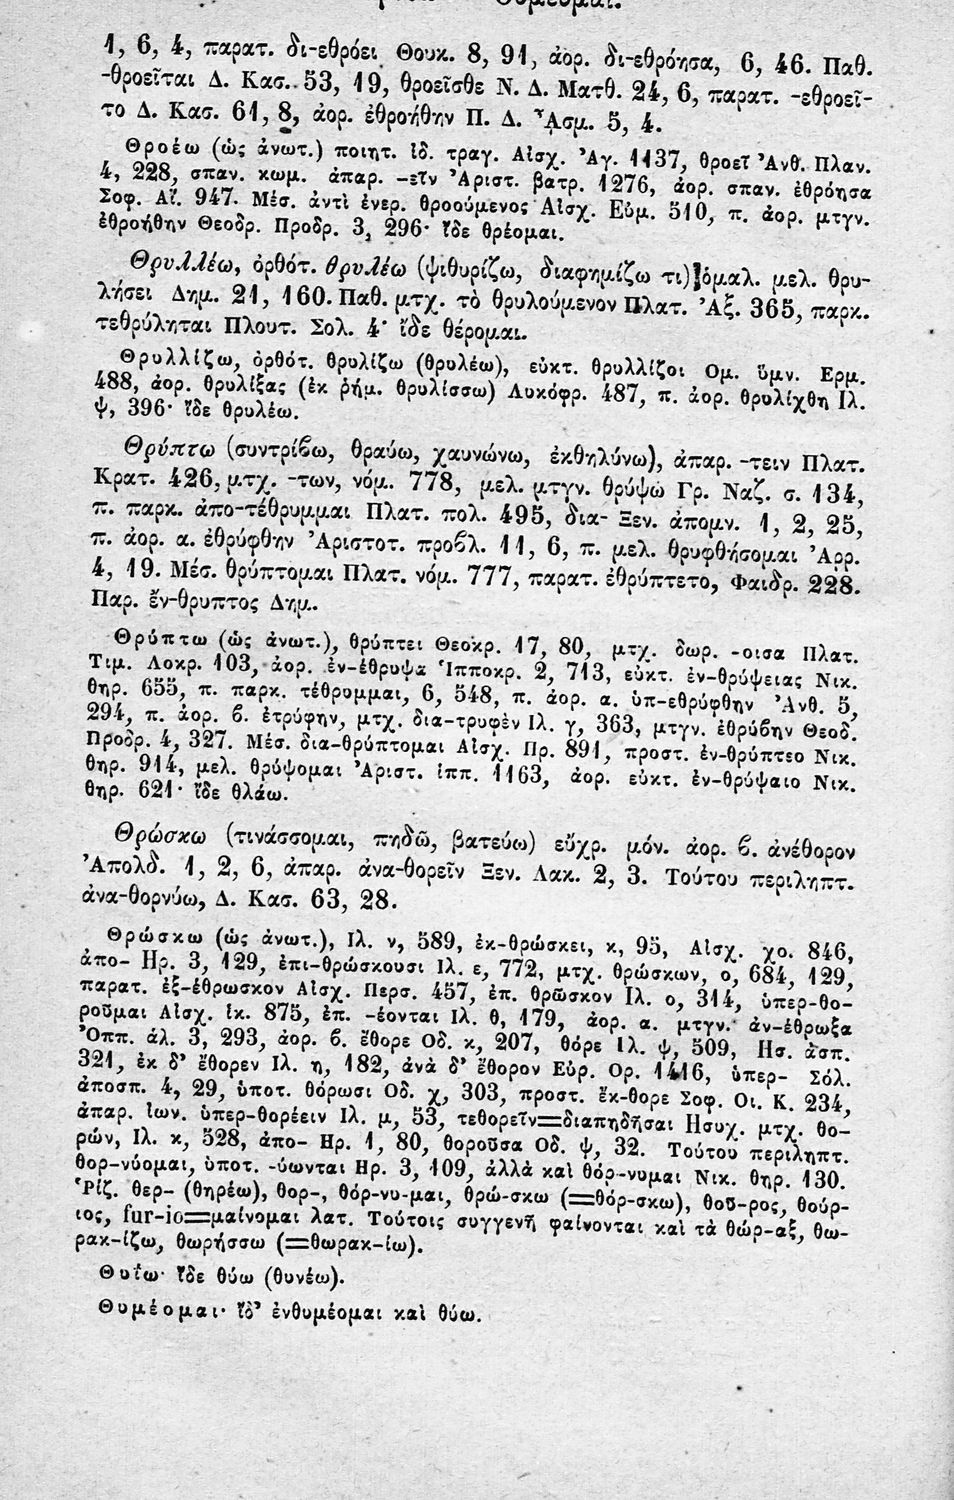 Θυμέομαι.
1, 6, 4, παρατ. δι-εθρόει Θουκ. 8, 91, ἀορ. δι-εθρόησα, 6, 46. Παθ.
-θροεῖται Δ. Κασ. 53, 19, θροεῖσθε Ν. Δ. Ματθ. 24, 6, παρατ. -εθροεῖ-
το Δ. Κασ. 61, 8, ἀορ. ἐθροήθην Π. Δ. Ἆσμ. 5, 4.
Θροέω (ὡς ἀνωτ.) ποιητ. ἰδ. τραγ. Αἰσχ. Ἀγ. 1137, θροεῖ Ἀνθ. Πλαν.
4, 228, σπαν. κωμ. ἀπαρ. -εῖν Ἀριστ. βατρ. 1276, ἀορ. σπαν. ἐθρόησα
Σοφ. Αἴ. 947· Μέσ. ἀντὶ ἐνερ. θροούμενος Αἰσχ. Εὐμ. 510, π. ἀορ. μτγν.
ἐθροήθην Θεοδρ. Προδρ. 3, 296· ἴδε θρέομαι.
Θρυλλέω, ὀρθότ. θρυλέω (ψιθυρίζω, διαφημίζω τι) ὁμαλ. μελ. θρυ-
λήσει Δημ. 21, 160. Παθ. μτχ. τὸ θρυλούμενον Πλατ. Ἀξ. 365, παρκ.
τεθρύληται Πλουτ. Σολ. 4· ἴδε θέρομαι.
Θρυλλίζω, ὀρθότ. θρυλίζω (θρυλέω), εὐκτ. θρυλλίζοι Ομ. ὕμν. Ερμ.
488, ἀορ. θρυλίξας (ἐκ ῥήμ. θρυλίσσω) Λυκόφρ. 487, π. ἀορ. θρυλίχθη Ιλ.
ψ, 396· ἴδε θρυλέω.
Θρύπτω (συντρίβω, θραύω, χαυνώνω, ἐκθηλύνω), ἀπαρ. -τειν Πλατ.
Κρατ. 426, μτχ. -των, νόμ. 778, μελ. μτγν. θρύψω Γρ. Ναζ. σ. 134,
π. παρκ. ἀπο-τέθρυμμαι Πλατ. πολ. 495, δια- Ξεν. ἀπομν. 1, 2, 25,
π. ἀορ. α. ἐθρύφθην Ἀριστοτ. προβλ. 11, 6, π. μελ. θρυφθήσομαι Ἀρρ.
4, 19. Μέσ. θρύπτομαι Πλατ. νόμ. 777, παρατ. ἐθρύπτετο, Φαιδρ. 228.
Παρ. ἔν-θρυπτος Δημ.
Θρύπτω (ὡς ἀνωτ.), θρύπτει Θεοκρ. 17, 80, μτχ. δωρ. -οισα Πλατ.
Τιμ. Λοκρ. 103, ἀορ. ἐν-έθρυψα Ἱπποκρ. 2, 713, εὐκτ. ἐν-θρύψειας Νικ.
θηρ. 655, π. παρκ. τέθρυμμαι, 6, 548, π. ἀορ. α. ὑπ-εθρύφθην Ἀνθ. 5,
294, π. ἀορ. β. ἐτρύφην, μτχ. δια-τρυφὲν Ιλ. γ, 363, μτγν. ἐθρύβην Θεοδ.
Προδρ. 4, 327. Μέσ. δια-θρύπτομαι Αἰσχ. Πρ. 891, προστ. ἐν-θρύπτεο Νικ.
θηρ. 914, μελ. θρύψομαι Ἀριστ. ἱππ. 1163, ἀορ. εὐκτ. ἐν-θρύψαιο Νικ.
θηρ. 621· ἴδε θλάω.
Θρώσκω (τινάσσομαι, πηδῶ, βατεύω) εὔχρ. μόν. ἀορ. β. ἀνέθορον
Ἀπολδ. 1, 2, 6, ἀπαρ. ἀνα-θορεῖν Ξεν. Λακ. 2, 3. Τούτου περιληπτ.
ἀνα-θορνύω, Δ. Κασ. 63, 28.
Θρώσκω (ὡς ἀνωτ.), Ιλ. ν, 589, ἐκ-θρώσκει, κ, 95, Αἰσχ. χο. 846,
ἀπο- Ηρ. 3, 129, ἐπι-θρώσκουσι Ιλ. ε, 772, μτχ. θρώσκων, ο, 684, 129,
παρατ. ἐξ-έθρωσκον Αἰσχ. Περσ. 457, ἐπ. θρῶσκον Ιλ. ο, 314, ὑπερ-θο-
ροῦμαι Αἰσχ. ἱκ. 875, ἐπ. -έονται Ιλ. θ, 179, ἀορ. α. μτγν. ἀν-έθρωξα
Ὀππ. ἁλ. 3, 293, ἀορ. β. ἔθορε Οδ. κ, 207, θόρε Ιλ. ψ, 509, Ησ. ἀσπ.
321, ἐκ δ' ἔθορεν Ιλ. η, 182, ἀνὰ δ' ἔθορον Εὐρ. Ορ. 1416, ὑπερ- Σόλ.
ἀποσπ. 4, 29, ὑποτ. θόρωσι Οδ. χ, 303, προστ. ἔκ-θορε Σοφ. Οι. Κ. 234,
ἀπαρ. ἰων. ὑπερ-θορέειν Ιλ. μ, 53, τεθορεῖν=διαπηδῆσαι Ησυχ. μτχ. θο-
ρών, Ιλ. κ, 528, ἀπο- Ηρ. 1, 80, θοροῦσα Οδ. ψ, 32. Τούτου περιληπτ.
θορ-νύομαι, ὑποτ. -ύωνται Ηρ. 3, 109, ἀλλὰ καὶ θόρ-νυμαι Νικ. θηρ. 130.
Ῥίζ. θερ- (θηρέω), θορ-, θόρ-νυ-μαι, θρώ-σκω (=θόρ-σκω), θοῦ-ρος, θούρ-
ιος, fur-io=μαίνομαι λατ. Τούτοις συγγενῆ φαίνονται καὶ τὰ θώρ-αξ, θω-
ρακ-ίζω, θωρήσσω (=θωρακ-ίω).
Θυΐω· ἴδε θύω (θυνέω).
Θυμέομαι· ἴδ' ἐνθυμέομαι καὶ θύω.